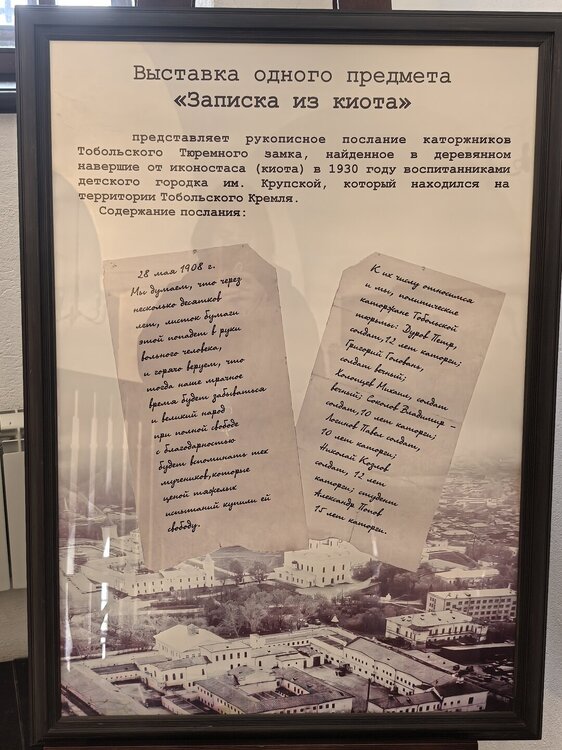 Выставка одного предмета
«Записка из киота»
представляет рукописное послание каторжников
Тобольского Тюремного замка, найденное в деревянном
навершие от иконостаса (киота) в 1930 году воспитанниками
детского городка им. Крупской, который находился на
территории Тобольского Кремля.
Содержание послания:
28 мая 1908 г.
Мы думаем, что через
несколько десятков
лет, листок бумаги
этой попадет в руки
вольного человека,
и горячо веруем, что
тогда наше мрачное
время будет забываться
и великий народ
при полной свободе
с благодарностью
будет вспоминать тех
мучеников,которые
ценой тяжелых
испытаний купили ей
свободу.
К их числу относимся
и мы, политические
каторжане Тобольской
тюрьмы: Дуров Петр,
солдат,12 лет каторги;
Григорий Головань,
солдат вечный;
Холопцев Михаил, солдат
вечный; Соколов Владимир –
солдат,10 лет каторги;
Логинов Павел солдат,
10 лет каторги;
Николай Козлов
солдат, 12 лет
каторги; студент
Александр Попов
15 лет каторги.